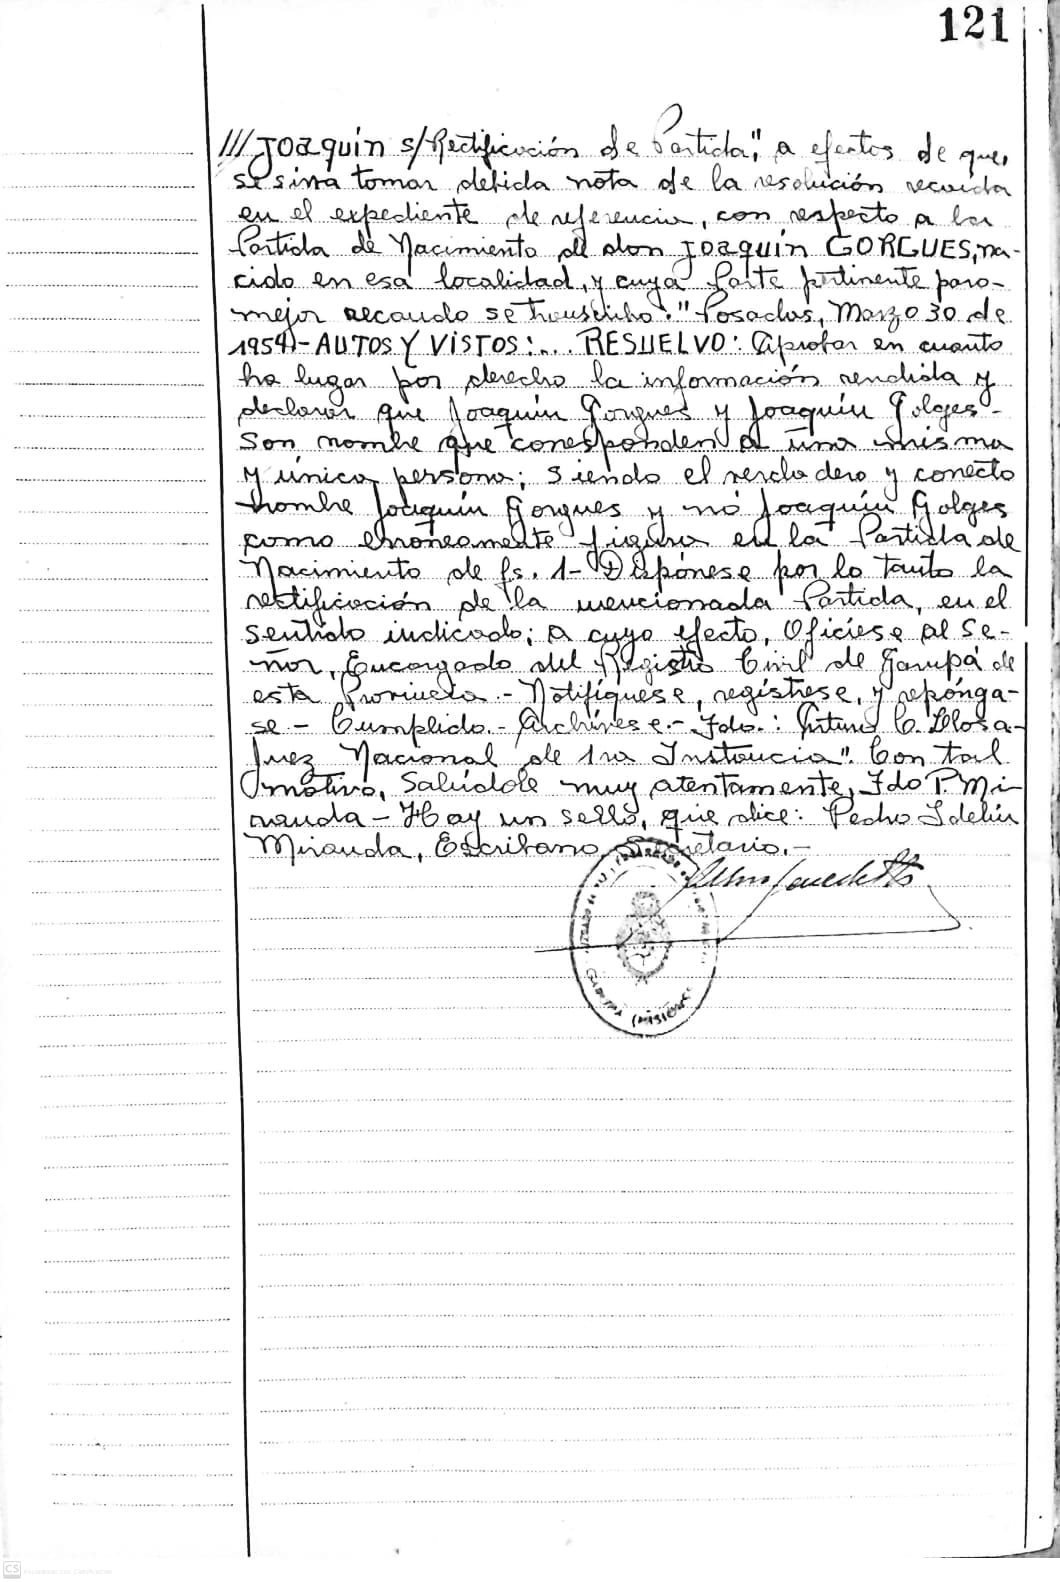 121
///Joaquín s/Rectificación de Partida", a efectos de que,
se sirva tomar debida nota de la resolución recaida
en el expediente de referencia, con respecto a la
Partida de Nacimiento de don Joaquín GORGUES, na-
cido en esa localidad, y cuya parte pertinente para
mejor recaudo se transcribe: "Posadas, Marzo 30 de
1954)- AUTOS Y VISTOS:... RESUELVO: Aprobar en cuanto
ha lugar por derecho la información rendida y
declarar que Joaquín Gorgues y Joaquín Golges-
Son nombre que corresponden a una misma
y única persona; Siendo el verdadero y correcto
nombre Joaquín Gorgues y nó Joaquín Golges
como erróneamente figura en la Partida de
Nacimiento de fs. 1- Dispónese por lo tanto la
rectificación de la mencionada Partida, en el
sentido indicado; a cuyo efecto, Ofíciese al Se-
ñor, Encargado del Registro Civil de Garupá de
esta Provincia.- Notifíquese, regístrese, y repónga-
se - Cumplido.- Archívese.- Fdo.: Arturo C. Llosa-
Juez Nacional de 1ra Instancia". Con tal
motivo, Salúdole muy atentamente, Fdo P. Mi-
randa - Hay un sello, que dice: Pedro Idelin
Miranda, Escribano Secretario.-
JUZGADO DE PAZ
GARUPA (MISIONES)
CS